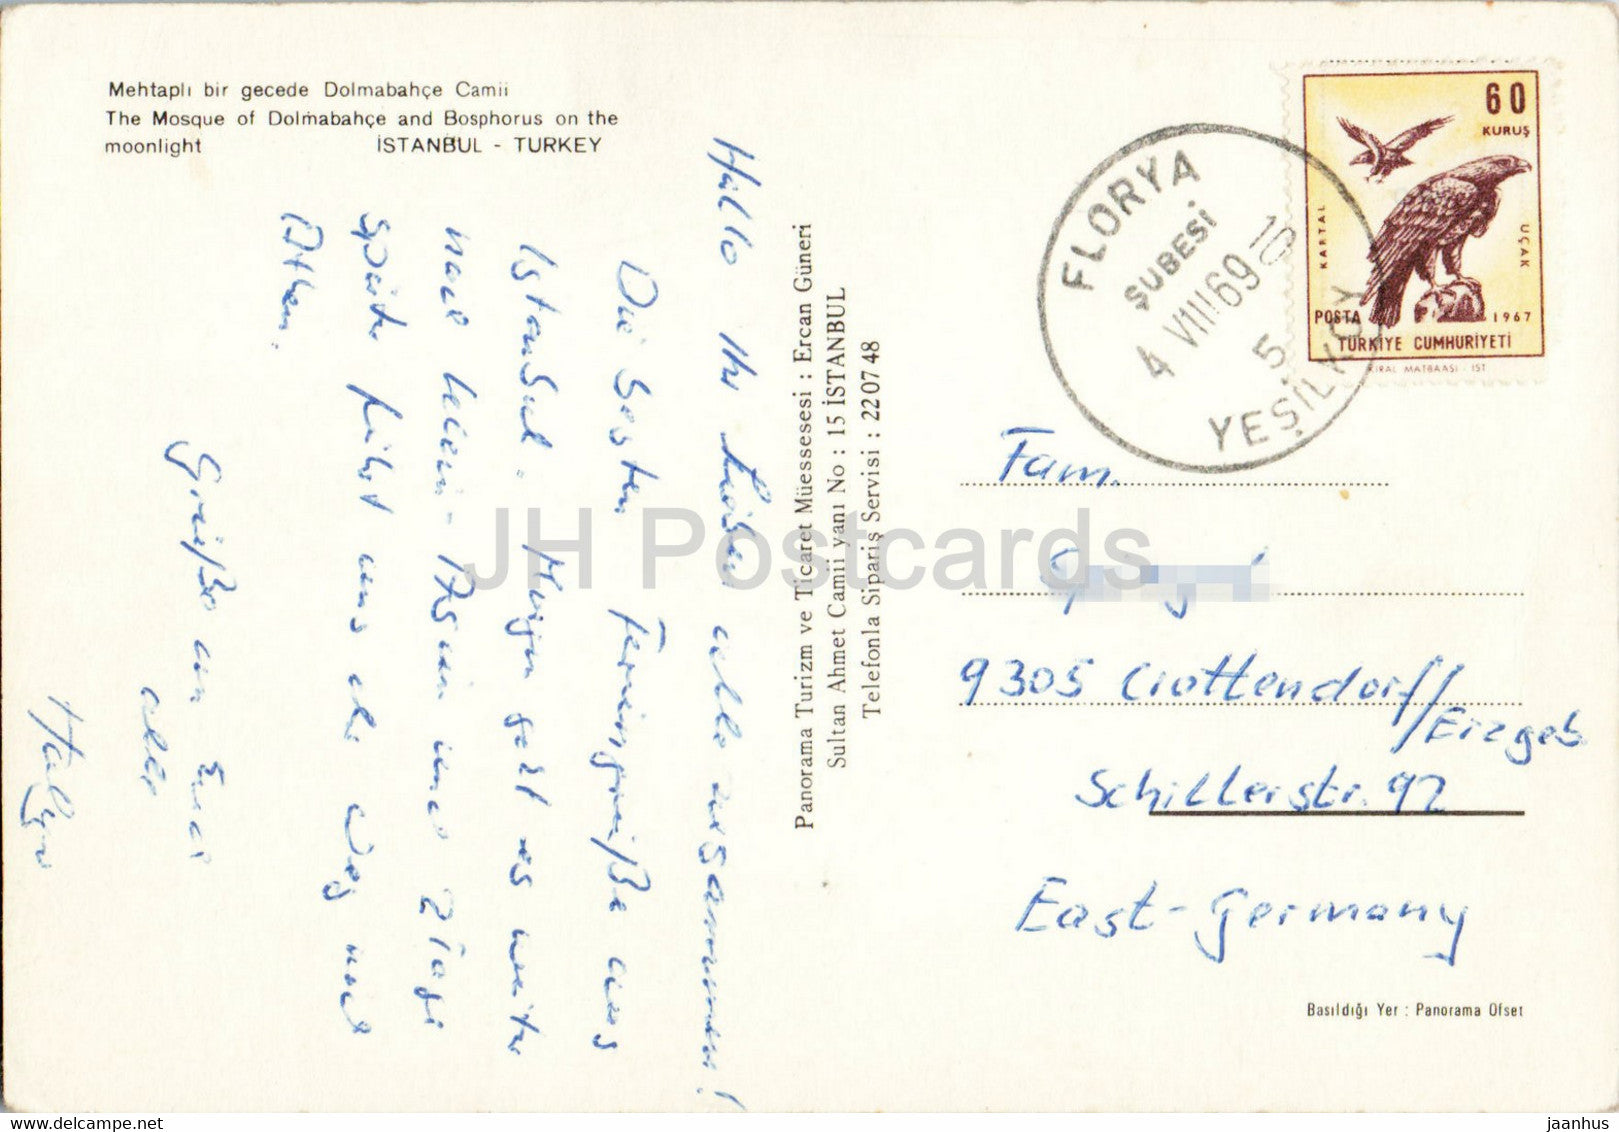 Mehtaplı bir gecede Dolmabahçe Camii
The Mosque of Dolmabahçe and Bosphorus on the
moonlight İSTANBUL - TURKEY
Hallo Ihr Lieben alle zusammen!
Die besten Feriengrüße aus
Istanbul. Morgen geht es weiter
nach Klein-Asien und 2 Tage
später führt uns der Weg nach
Athen.
Grüße an Euch
alle
Panorama Turizm ve Ticaret Müessesesi : Ercan Güneri
Sultan Ahmet Camii yanı No : 15 İSTANBUL
Telefonla Sipariş Servisi : 22 07 48
FLORYA
ŞUBESİ
4 VIII 69 10
5
YEŞİLKÖY
60
KURUŞ
KARTAL
UÇAK
POSTA 1967
TÜRKİYE CUMHURİYETİ
KIRAL MATBAASI - İST
Fam.
9305 Crottendorf/
Erzgeb.
Schillerstr. 92
East-Germany
Basıldığı Yer : Panorama Ofset
JH Postcards
www.hippostcard.com
jaanhus